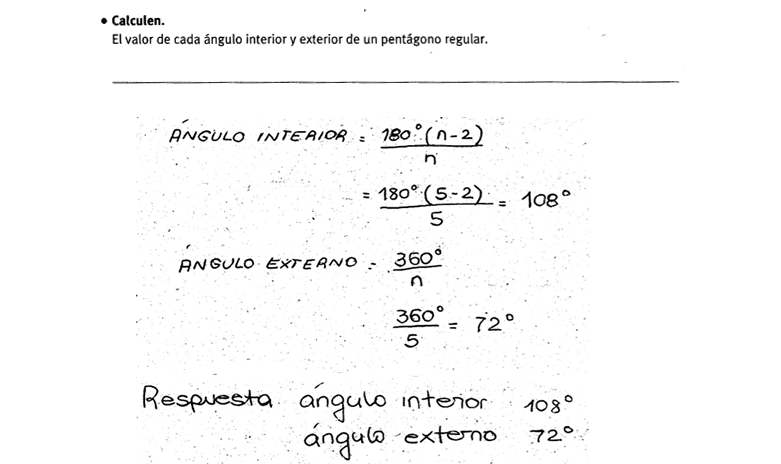 • Calculen.
El valor de cada ángulo interior y exterior de un pentágono regular.
ÁNGULO INTERIOR = 180°(n-2)
n
= 180°(5-2) = 108°
5
ÁNGULO EXTERNO = 360°
n
360° = 72°
5
Respuesta ángulo interior 108°
ángulo externo 72°